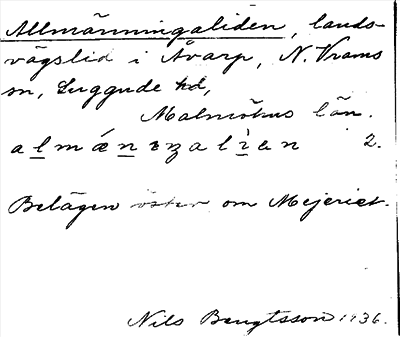 Allmänningaliden, lands-
vägslid i Åvarp, N. Vrams
sn, Luggude hd,
Malmöhus län.
2.
Belägen öster om Mejeriet.
Nils Bengtsson 1936.